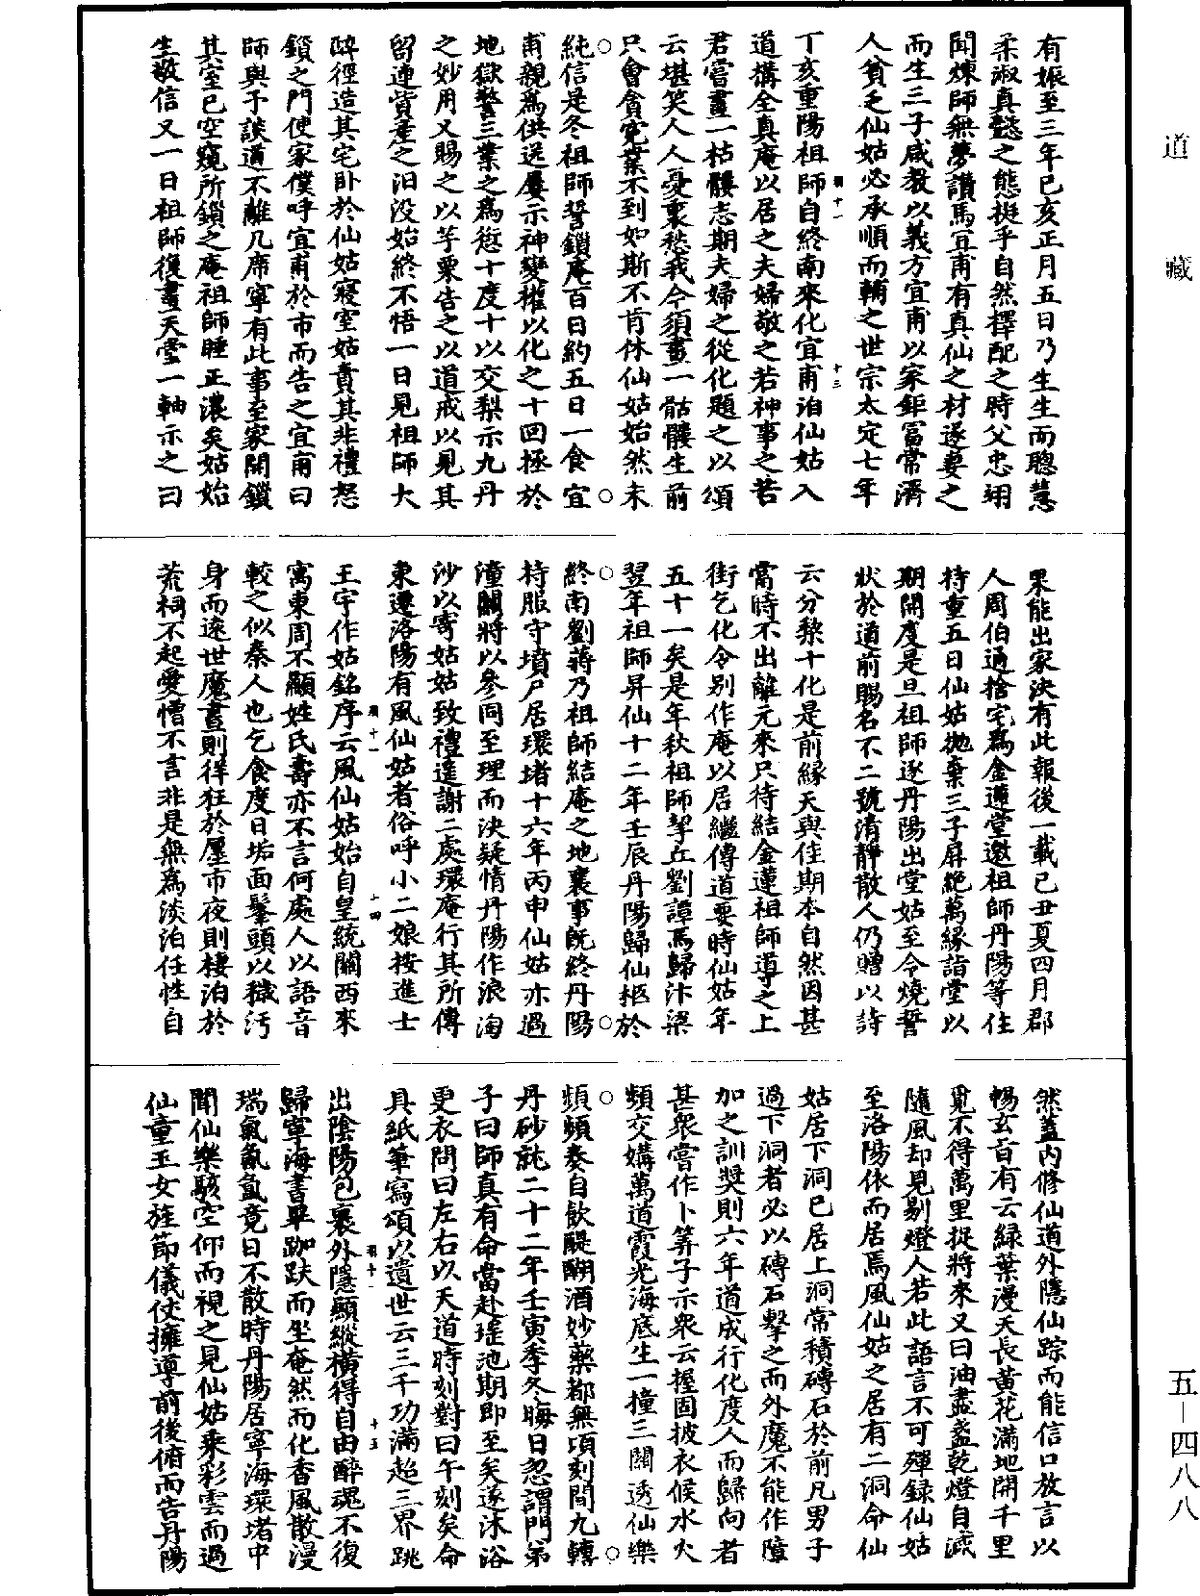 道藏
五－四八八
有娠至三年己亥正月五日乃生生而聰慧
柔淑真懿之態挺乎自然擇配之時父忠翊
聞煉師無夢讚馬宜甫有真仙之材遂妻之
而生三子咸教以義方宜甫以家鉅富常濟
人貧乏仙姑必承順而輔之世宗大定七年
丁亥重陽祖師自終南來化宜甫泊仙姑入
道搆全真庵以居之夫婦敬之若神事之若
君嘗畫一枯髏志期夫婦之從化題之以頌
云堪笑人人憂裏愁我今須畫一骷髏生前
只會貪冤業不到如斯不肯休仙姑始然未
純信是冬祖師誓鎖庵百日約五日一食宜
甫親為供送屢示神變權以化之十回拯於
地獄警三業之為愆十度十以交梨示九丹
之妙用又賜之以芋栗告之以道戒以見其
留連貲產之汩沒始終不悟一日見祖師大
醉徑造其宅卧於仙姑寢室姑責其非禮怒
鎖之門使家僕呼宜甫於市而告之宜甫曰
師與予談道不離几席寧有此事至家開鎖
其室已空窺所鎖之庵祖師睡正濃矣姑始
生敬信又一日祖師復畫天堂一軸示之曰
果能出家決有此報後一載己丑夏四月郡
人周伯通捨宅為金蓮堂邀祖師丹陽等住
持重五日仙姑拋棄三子屏絕萬緣詣堂以
期開度是旦祖師逐丹陽出堂姑至令燒誓
狀於道前賜名不二號清靜散人仍贈以詩
云分梨十化是前緣天與佳期本自然因甚
當時不出離元來只待結金蓮祖師導之上
街乞化令別作庵以居繼傳道要時仙姑年
五十一矣是年秋祖師挈丘劉譚馬歸汴梁
翌年祖師昇仙十二年壬辰丹陽歸仙柩於
終南劉蔣乃祖師結庵之地襄事既終丹陽
持服守墳尸居環堵十六年丙申仙姑亦過
潼關將以參同至理而決疑情丹陽作浪淘
沙以寄姑姑致禮遙謝二處環庵行其所傳
東遷洛陽有風仙姑者俗呼小二娘按進士
王宇作姑銘序云風仙姑始自皇統關西來
寓東周不顯姓氏壽亦不言何處人以語音
較之似秦人也乞食度日垢面鬅頭以穢汚
身而遠世魔晝則徉狂於廛市夜則棲泊於
荒祠不起愛憎不言非是無為淡泊任性自
然蓋內修仙道外隱仙踪而能信口放言以
暢玄旨有云綠葉漫天長黃花滿地開千里
覓不得萬里捉將來又曰油盡盞乾燈自滅
隨風却見剔燈人若此語言不可殫錄仙姑
至洛陽依而居焉風仙姑之居有二洞命仙
姑居下洞已居上洞常積磚石於前凡男子
過下洞者必以磚石擊之而外魔不能作障
加之訓獎則六年道成行化度人而歸向者
甚衆嘗作卜筭子示衆云握固披衣候水火
頻交媾萬道霞光海底生一撞三關透仙樂
頻頻奏自飲醍醐酒妙藥都無頃刻間九轉
丹砂就二十二年壬寅季冬晦日忽謂門弟
子曰師真有命當赴瑤池期即至矣遂沐浴
更衣問曰左右以天道時刻對曰午刻矣命
具紙筆寫頌以遺世云三千功滿超三界跳
出陰陽包裹外隱顯縱橫得自由醉魂不復
歸寧海書畢跏趺而坐奄然而化香風散漫
瑞氣氤氳竟日不散時丹陽居寧海環堵中
聞仙樂駭空仰而視之見仙姑乘彩雲而過
仙童玉女旌節儀仗擁導前後俯而告丹陽